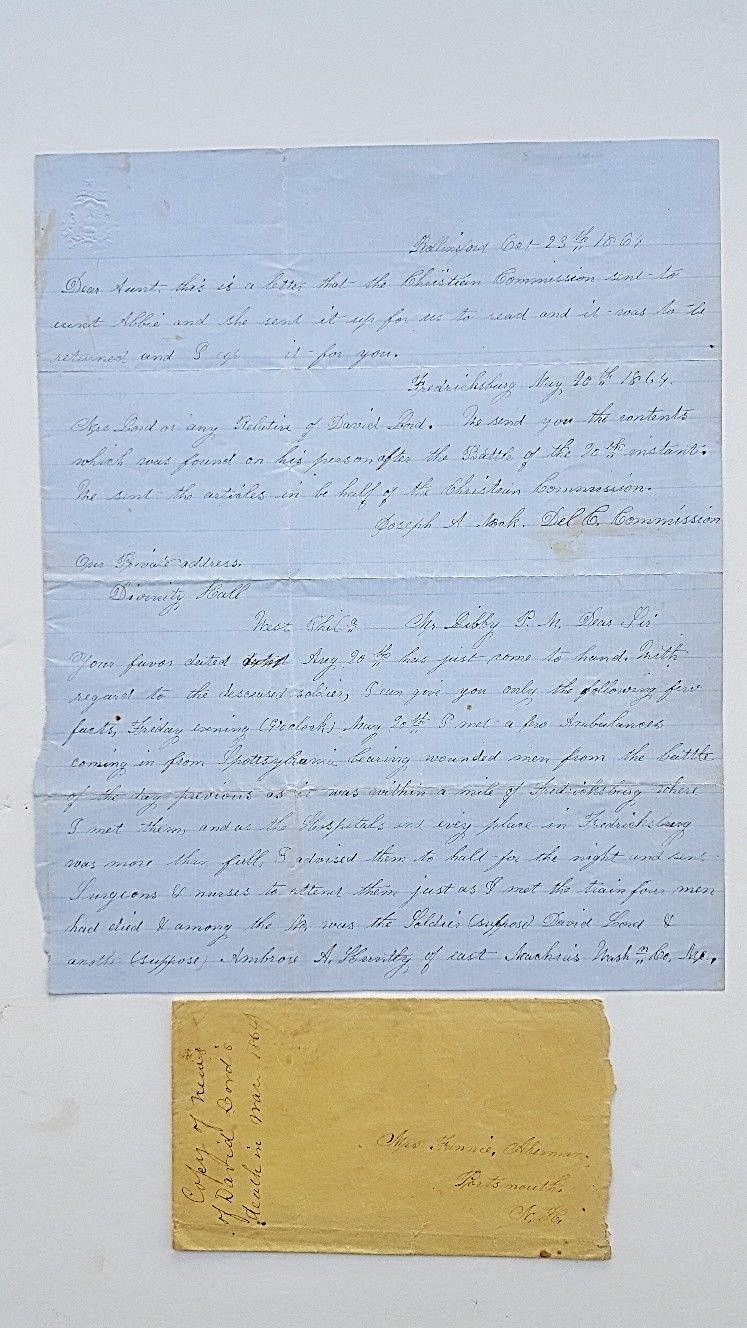 Oct 23th 1864
Dear Aunt this is a letter that the Christian Commission sent to
aunt Abbie and she sent it up for us to read and it was to be
returned and I it for you.
Fredricksburg May 20th 1864.
Mrs Lord or any Relative of David Lord. We send you the contents
which was found on his person after the Battle of the 20th instant.
We sent the articles in be half of the Christian Commission.
Joseph A Del C. Commission
Our Private address.
Divinity Hall
West Phila Mr Libby P. M. Dear Sir
Your favor dated Aug 20th has just come to hand. With
regard to the desceased soldier, I can give you only the following few
facts, Friday evening (7 oclock) May 20th I met a few Ambulances
coming in from Spottsylvania bearing wounded men from the battle
of the day previous as it was within a mile of Fredricksburg where
I met them, and as the Hospitals and every place in Fredricksburg
was more than full, I advised them to halt for the night and sent
Surgeons & nurses to attend them just as I met the train four men
had died & among the was the Soldier (suppose) David Lord &
another (suppose) Ambrose A. Huntly of east Machias Wash'n Co, Me.
Copy of news
of David Lord's
death in war 1864
Mrs Fannie,
Portsmouth.
N. H.